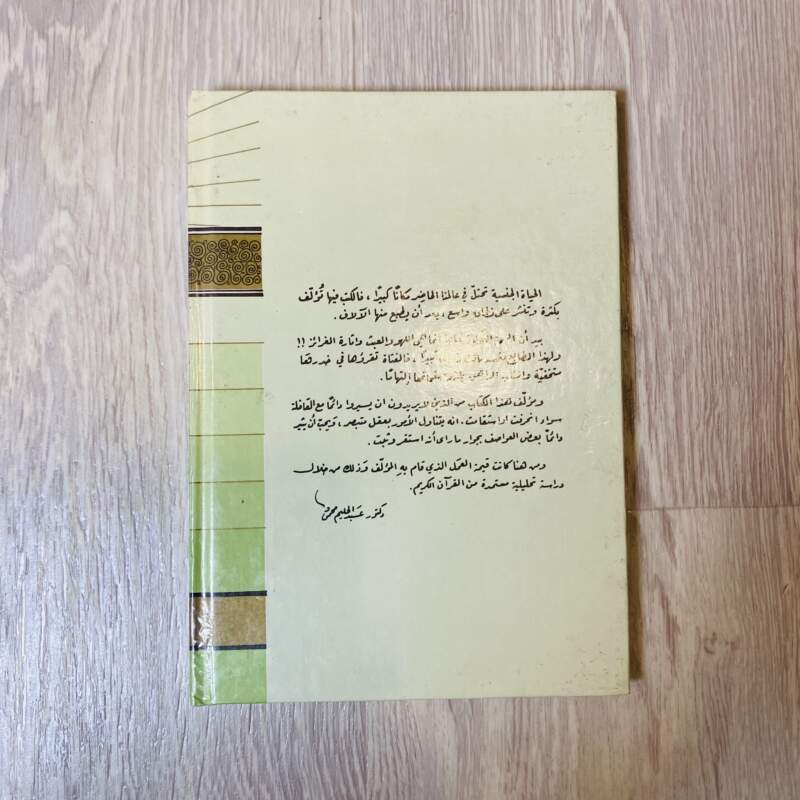 الحياة الجنسية تحتلّ في عالمنا الحاضر مكانًا كبيرًا، فالكتب فيها تُؤلّف
بكثرة وتنشر على نطاق واسع، بعد أن يطبع منها الآلاف.
بيد أن إلى اللهو والعبث واثارة الغرائز !!
ولهذا ، فالفتاة تقرؤها في خدرها
متخفيّة إلتهامًا.
ومؤلّف هذا الكتاب من الذين لا يريدون ان يسيروا دائمًا مع القافلة
سواء انحرفت او استقامت، انه يتناول الأمور بعقل متبصر، ويحبّ أن يثير
دائمًا بعض العواصف بجوار ما رأى أنه استقر وثبت.
ومن هنا كانت قيمة العمل الذي قام به المؤلّف وذلك من خلال
دراسة تحليلية معتمدة من القرآن الكريم.
دكتور عبد الحليم محمود